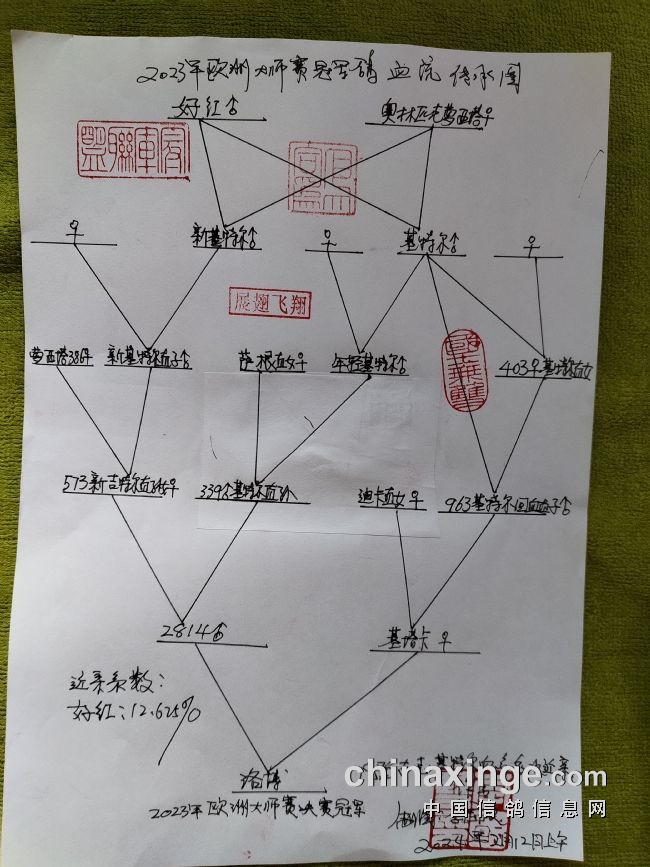 2023年欧洲大师赛冠军鸽血流传承图
好红♂
奥林匹克梦西塔♀
♀
新基特尔♂
♀
基特尔♂
♀
展翅飞翔
梦西塔386♀
新基特尔直子♂
萨根直女♀
年轻基特尔♂
403♀基特尔直女
573新吉特尔直孙女♀
339♂基特尔直孙
迪卡直女♀
963基特尔回血直子♂
2814♂
基塔卡♀
近亲系数：
好红：12.625%
洛博
2023年欧洲大师赛决赛冠军
chinaxinge.com
中国信鸽信息网
12日上午